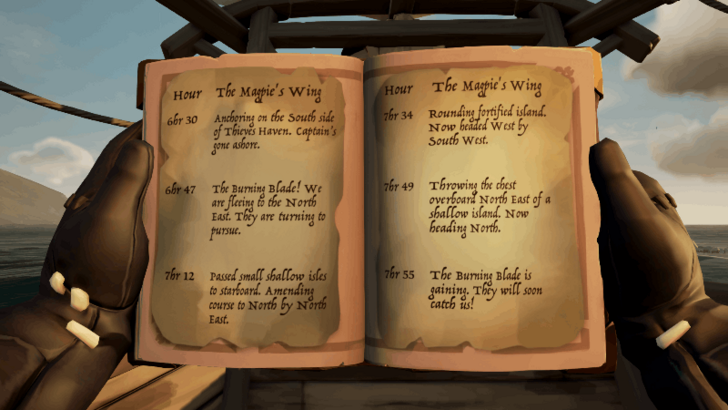 Hour The Magpie's Wing
6hr 30 Anchoring on the South side
of Thieves Haven. Captain's
gone ashore.
6hr 47 The Burning Blade! We
are fleeing to the North
East. They are turning to
pursue.
7hr 12 Passed small shallow isles
to starboard. Amending
course to North by North
East.
Hour The Magpie's Wing
7hr 34 Rounding fortified island.
Now headed West by
South West.
7hr 49 Throwing the chest
overboard North East of a
shallow island. Now
heading North.
7hr 55 The Burning Blade is
gaining. They will soon
catch us!